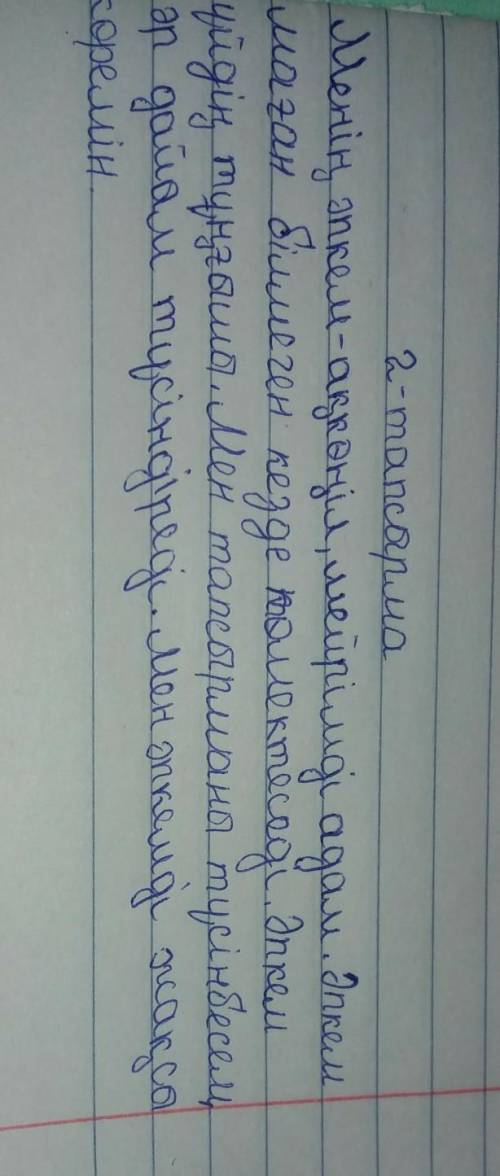 2-тапсырма
Менің әпкем-ақкөңіл, мейрімді адам. Әпкем
маған білмеген кезде көмектеседі. Әпкем
үйдің тұңғышы. Мен тапсырманы түсінбесем,
әр дайым түсіндіреді. Мен әпкемді жақсы
көремін.